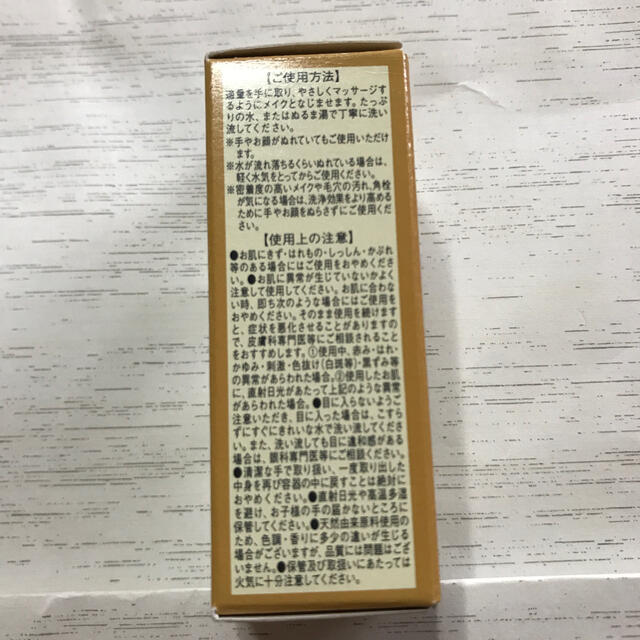 【ご使用方法】
適量を手に取り、やさしくマッサージす
るようにメイクとなじませます。たっぷ
りの水、またはぬるま湯で丁寧に洗い
流してください。
※手やお顔がぬれていてもご使用いただけ
ます。
※水が流れ落ちるくらいぬれている場合は、
軽く水気をとってからご使用ください。
※密着度の高いメイクや毛穴の汚れ、角栓
が気になる場合は、洗浄効果をより高める
ために手やお顔をぬらさずにご使用くださ
い。
【使用上の注意】
●お肌にきず・はれもの・しっしん・かぶれ
等のある場合にはご使用をおやめくださ
い。●お肌に異常が生じていないかよく
注意して使用してください。お肌に合わな
い時、即ち次のような場合にはご使用を
おやめください。そのまま使用を続けます
と、症状を悪化させることがありますの
で、皮膚科専門医等にご相談されること
をおすすめします。①使用中、赤み・はれ・
かゆみ・刺激・色抜け(白斑等)・黒ずみ等
の異常があらわれた場合。②使用したお肌
に、直射日光があたって上記のような異常
があらわれた場合。●目に入らないようご
注意いただき、目に入った場合は、こすら
ずにすぐにきれいな水で洗い流してくださ
い。また、洗い流しても目に違和感がある
場合は、眼科専門医等にご相談ください。
●清潔な手で取り扱い、一度取り出した
中身を再び容器の中に戻すことは絶対に
おやめください。●直射日光や高温多湿
を避け、お子様の手の届かないところに
保管してください。●天然由来原料使用の
ため、色調・香りに多少の違いが生じる
場合がございますが、品質には問題はござ
いません。●保管及び取扱いにあたっては
火気に十分注意してください。